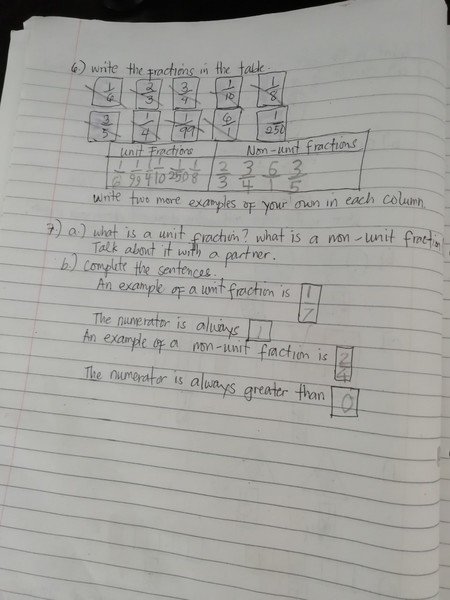 6.) write the fractions in the table.
1/6 2/3 3/4 1/10 1/8
3/5 1/4 1/99 6/1 1/250
Unit Fractions Non-unit fractions
1/6 1/99 1/4 1/10 1/250 1/8 2/3 3/4 6/1 3/5
write two more examples of your own in each column
7.) a.) what is a unit fraction? what is a non-unit fraction
Talk about it with a partner.
b.) complete the sentences.
An example of a unit fraction is 1/7
The numerator is always 1
An example of a non-unit fraction is 2/4
The numerator is always greater than 0